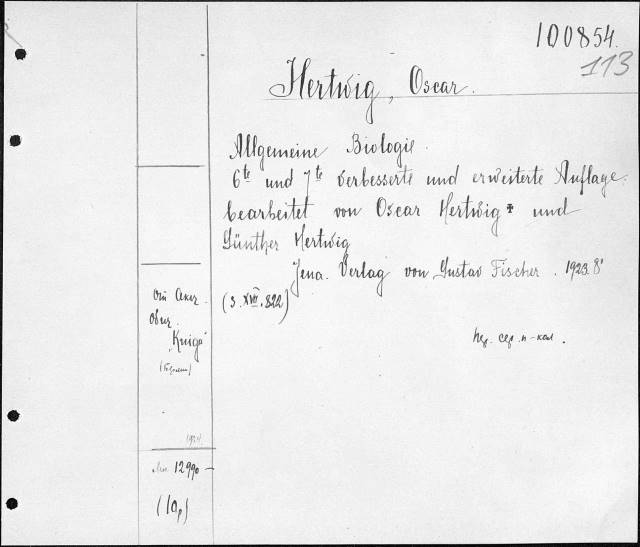 100854.
113
Hertwig, Oscar.
Allgemeine Biologie.
6te und 7te verbesserte und erweiterte Auflage.
bearbeitet von Oscar Hertwig ✠ und
Günther Hertwig
Jena. Verlag von Gustav Fischer. 1923. 8°
(3. XVII. 822)
От Акц.
Общ.
"Книга"
1924.
12990 —
(10р)